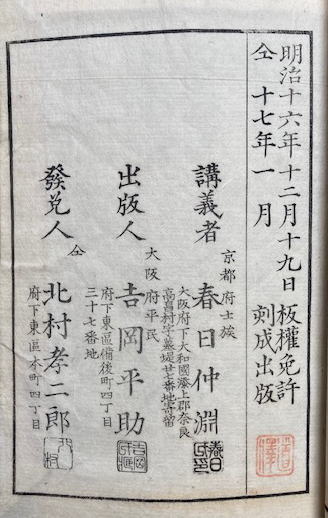 明治十六年十二月十九日 板權免許
仝 十七年一月 刻成出版
講義者
京都府士族
春日仲淵
大阪府下大和國添上郡奈良
高畠村字 廿七番地寄留
出版人
大阪府平民
吉岡平助
府下東區備後町四丁目
三十七番地
發兌人
仝
北村孝二郎
府下東區本町四丁目